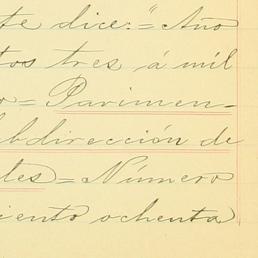 te dice:="Año
tos tres á mil
o=Pavimen-
bdirección de
les=Número
iento ochenta